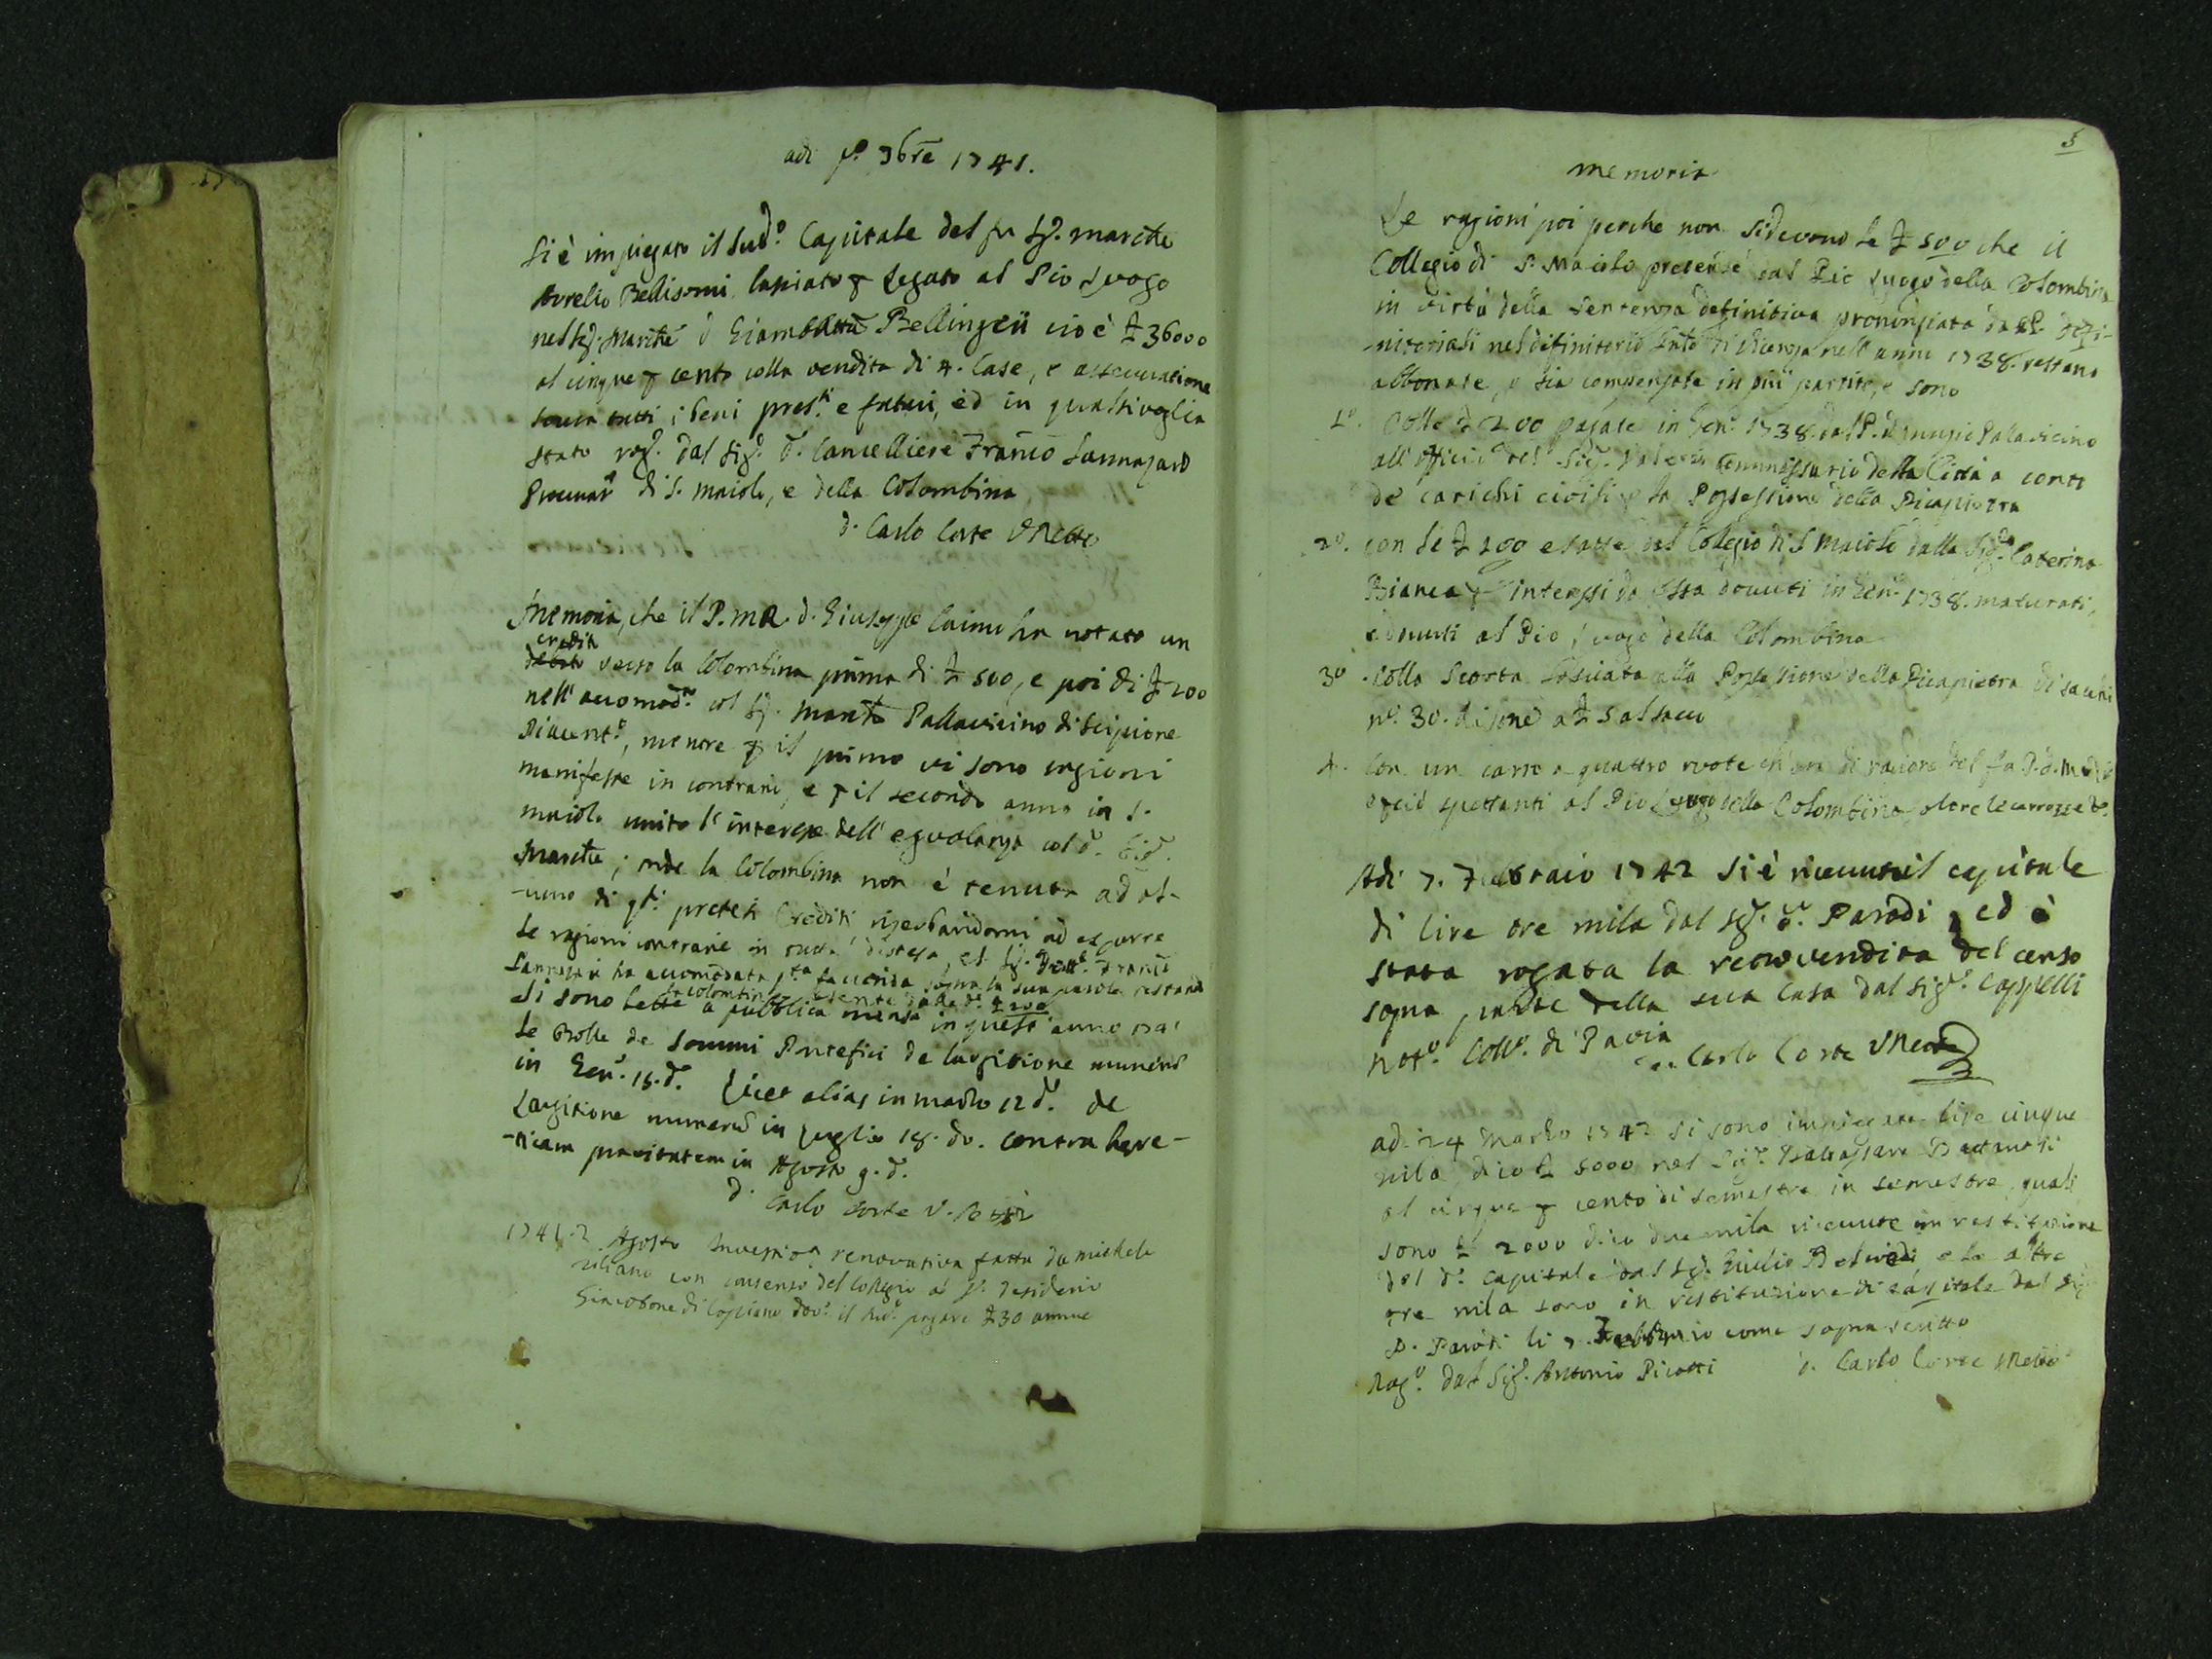 adi p.º 9bre 1741.
Si è impiegato il sud.º Capitale del fu Sig. marche
Aurelio Bellisomi lasciato p legato al Pio Luogo
nel Sig. Marche d Giambatta Bellingeri cioè £ 36000
al cinque p cento colla vendita di 4. Case, e assecuratione
sovra tutti i beni pres.ti e futuri, ed in qualsivoglia
stato rog. dal Sig. d. Cancelliere Franco Sannazaro
Procurat di S. Maiolo, e della Colombina
d. Carlo Corte VRettº
Memoria, che il P. m R. d. Giuseppe Caimo ha notato un
credito
debito verso la Colombina prima di £ 500, e poi di £ 200
nell' accomod.to col Sig. March Pallavicino di Scipione
Piacent.º, mentre p il primo vi sono ragioni
manifeste in contrario, e p il secondo anno in S.
maiolo unito l' interesse dell' egualanza col d. Sig.
Marche; onde la Colombina non è tenuta ad al-
-cuno di q.ti pretesi Crediti, riserbandomi ad esporre
le ragioni contrarie in carta distesa, et Sig. Franco
Sannazari ha accomodata q.ta facenda sopra la sua parola restando
la Colombina esente dalle d. £ 200
Si sono lette a pubblica mensa in quest' anno 1741
le Bolle de Sommi Pontefici de largitione munerum
in Gen. 15. d. Licet alias in marzo 12 d. de
Largitione munerum in Luglio 18. do. contra here-
-ticam pravitatem in Agosto 9. d.
D. Carlo Corte V. Rettr
1741. 2 Agosto Investiª renovativa fatta da Michele
Ciliano con consenso del Collegio a Desiderio
Giacobone di Copiano dov. il pagare £ 30 annue
5
memoria
Le ragioni poi perche non si devono le £ 500 che il
Collegio di S. Maiolo pretende dal Pio Luogo della Colombina
in virtù della Sentenza definitiva prononziata da PP. Defi-
-nitoriali nel difinitorio fatto di Vicenza nell' anno 1738. restano
abbonate, o sia compensate in più partite, e sono
1.º Colle £ 200 pagate in Gen. 1738. dal P. d Pallavicino
all' officio del Sig. Commissario della Città a conto
de carichi civili p la Possessione della Picapietra
2.º con le £ 200 esatte dal Collegio di S. Maiolo dalla Sig.ra Caterina
Bianca p interessi da essa dovuti in Gen. 1738. maturati,
e dovuti al Pio Luogo della Colombina
3.º colla Scorta lasciata alla Possessione della Picapietra di sacchi
nº. 30. a £ 5 al sacco
4. Con un carro a quattro ruote di ragione del fu P. d.
e perciò spettanti al Pio Luogo della Colombina, oltre le carrozze &.
Adi 7. Febbraio 1742 Si è ricevuto il capitale
di lire tre mila dal Sig. d. Parodi, ed è
stata rogata la retrovendita del censo
sopra parte della sua Casa dal Sig. Cappelli
Notº. Collº. di Pavia
d. Carlo Corte VRettº
adi 24 Marzo 1742 si sono impiegate lire cinque
mila dico £ 5000 nel Sig. Baldassare
al cinque p cento di semestre in semestre, quali
sono £ 2000 dico due mila ricevute in restituzione
del d. capitale dal Sig. Giulio Belcredi, e le altre
tre mila sono in restituzione di capitale dal Sig
D. Parodi li 7. Febbraio come sopra scritto
Rogº. dal Sig. Antonio Picotti d. Carlo Corte VRettº